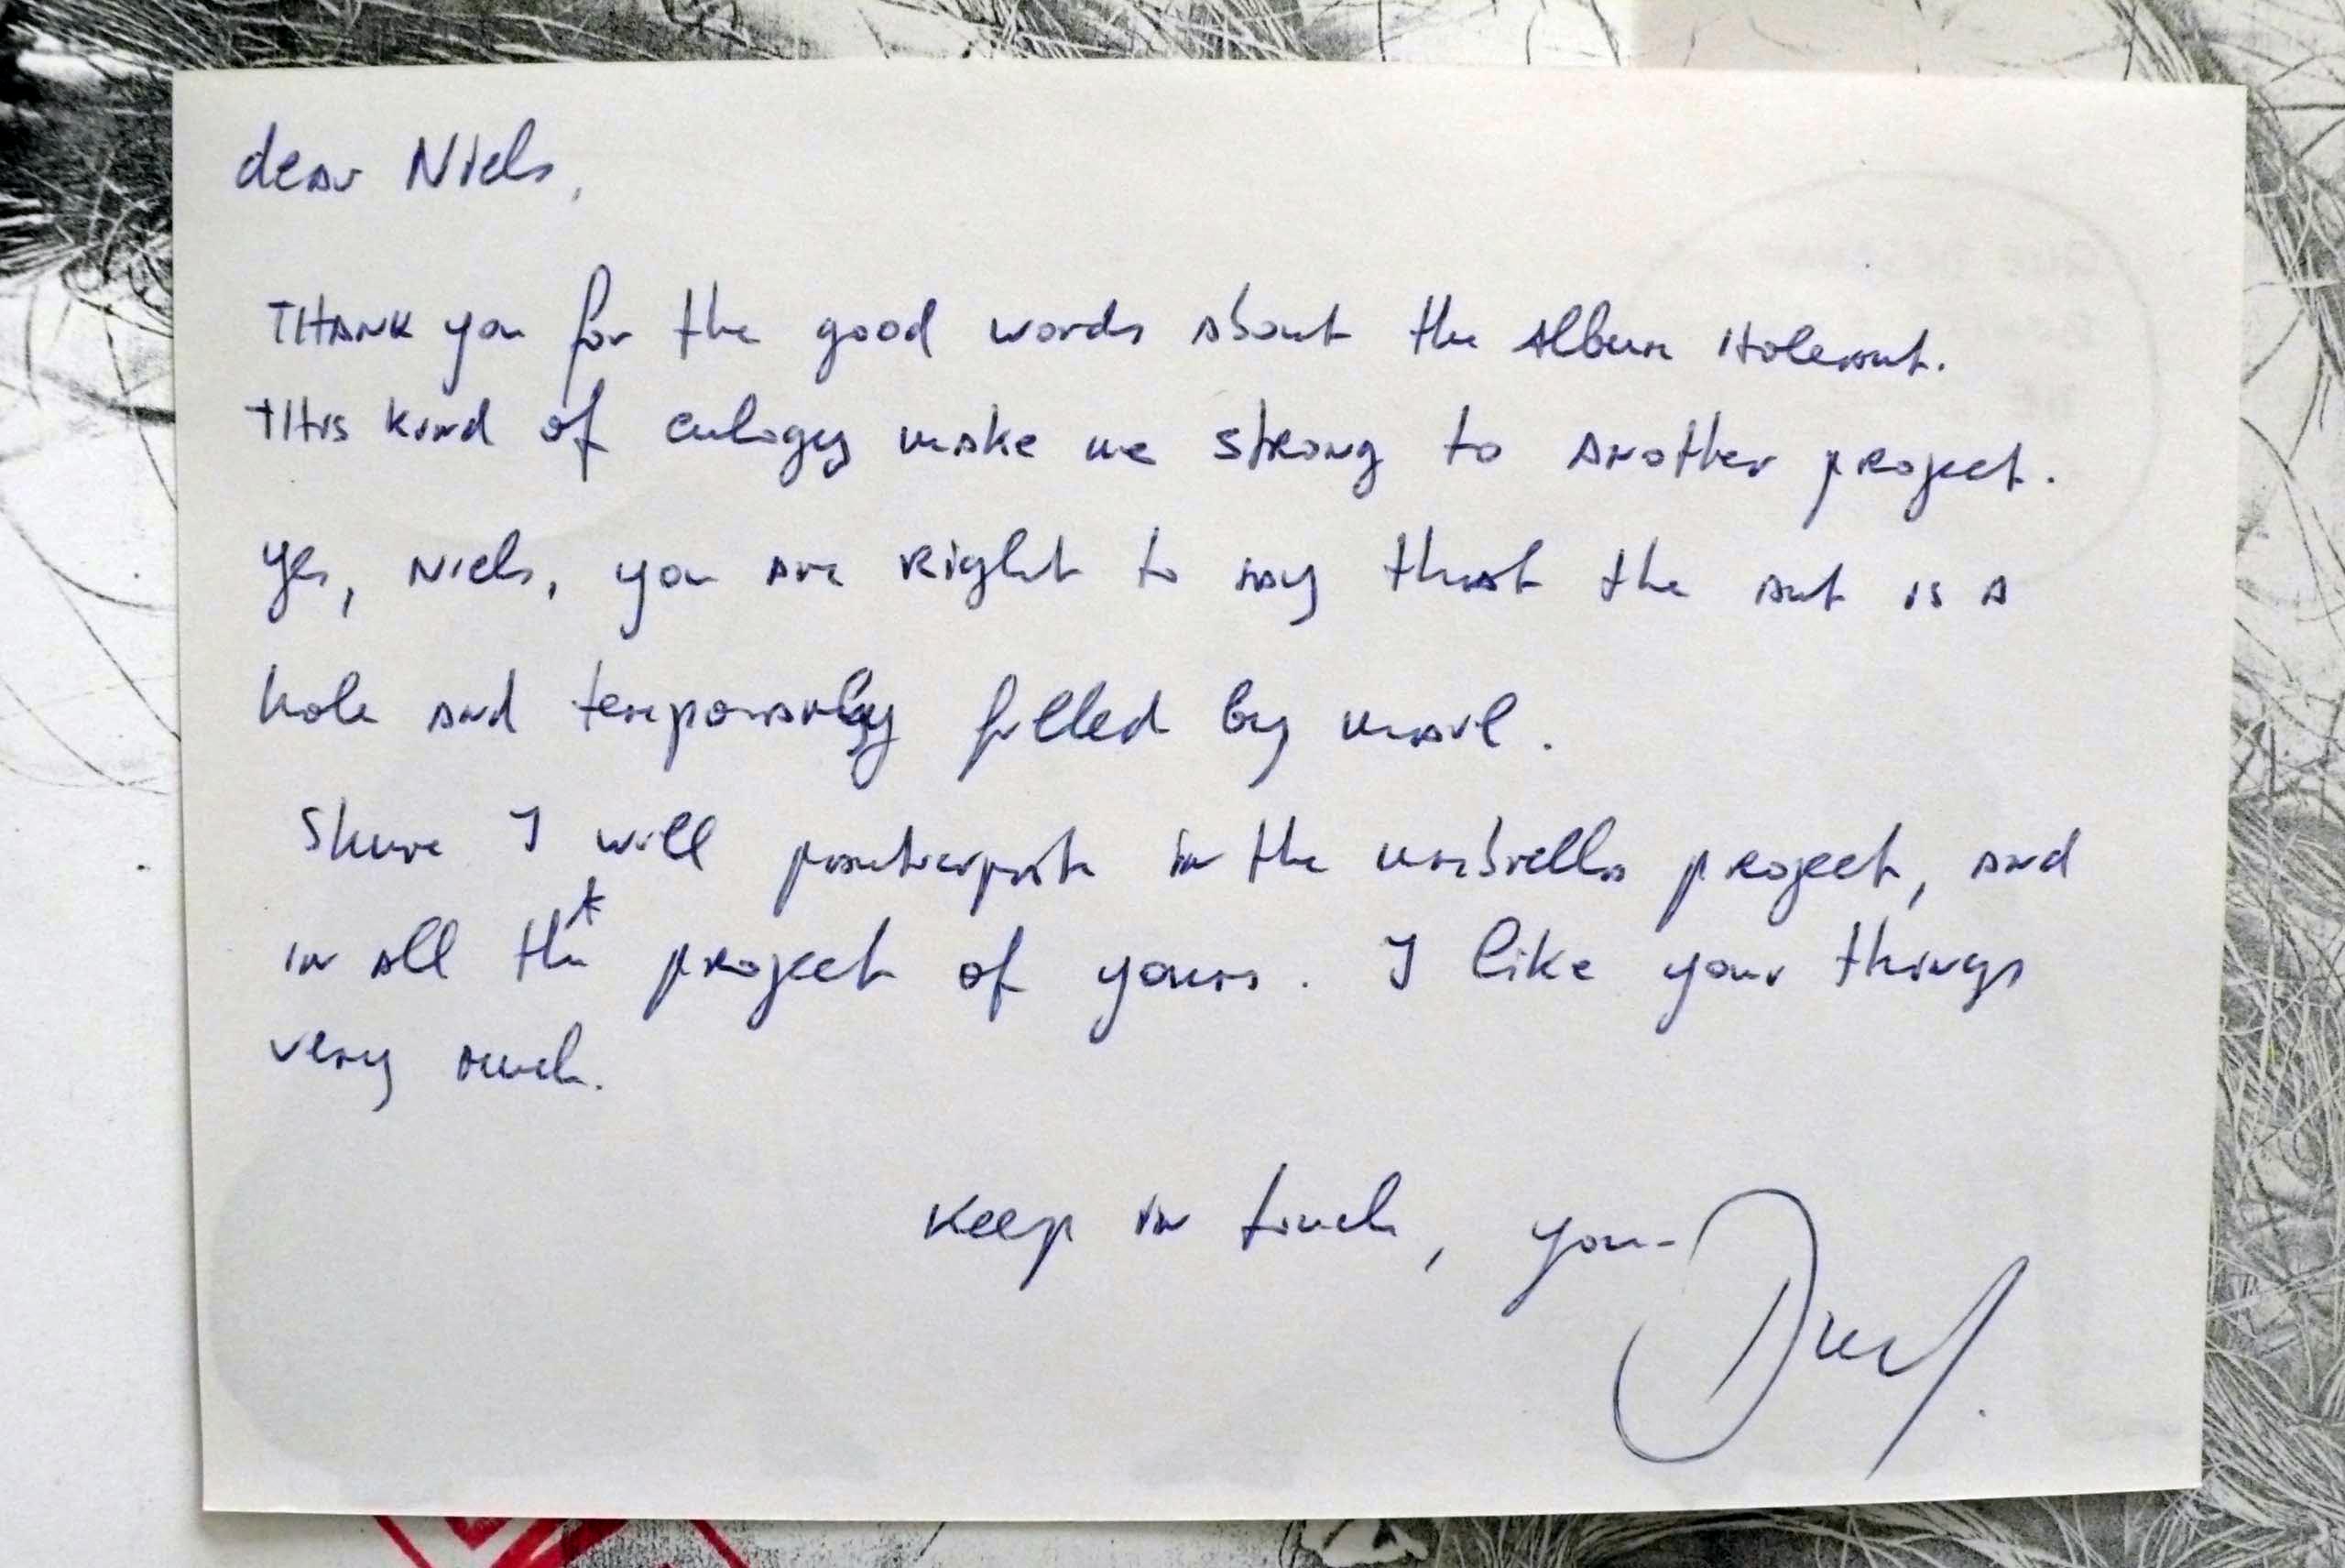 dear Niels,
THANK you for the good words about the Album Holeart.
THis kind of eulogy make me strong to another project.
Yes, Niels, you are right to say that the art is a
hole and temporarily filled by mail.
Shure I will participate in the umbrella project, and
in all the project of yours. I like your things
very much.
Keep in touch, your